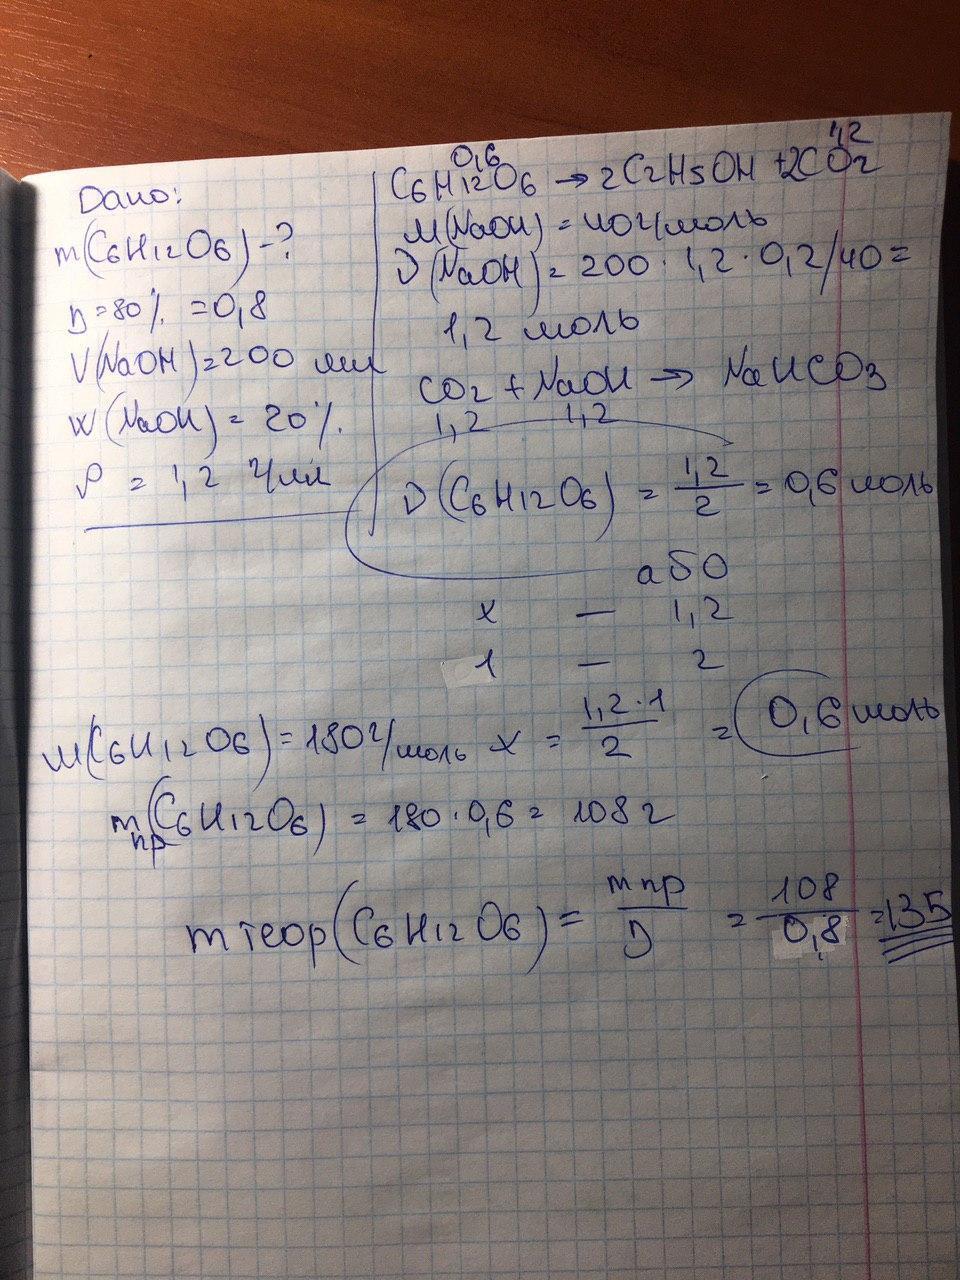 Дано:
m(C6H12O6) - ?
η = 80% = 0,8
V(NaOH) = 200 мл
W(NaOH) = 20%.
ρ = 1,2 г/мл
0,6 1,2
C6H12O6 → 2C2H5OH + 2CO2
M(NaOH) = 40г/моль
ν(NaOH) = 200 · 1,2 · 0,2/40 =
1,2 моль
CO2 + NaOH → NaHCO3
1,2 1,2
ν(C6H12O6) = 1,2/2 = 0,6 моль
або
x — 1,2
1 — 2
M(C6H12O6) = 180г/моль x = 1,2·1/2 = 0,6 моль
mпр(C6H12O6) = 180 · 0,6 = 108 г
mтеор(C6H12O6) = mпр/η = 108/0,8 = 135